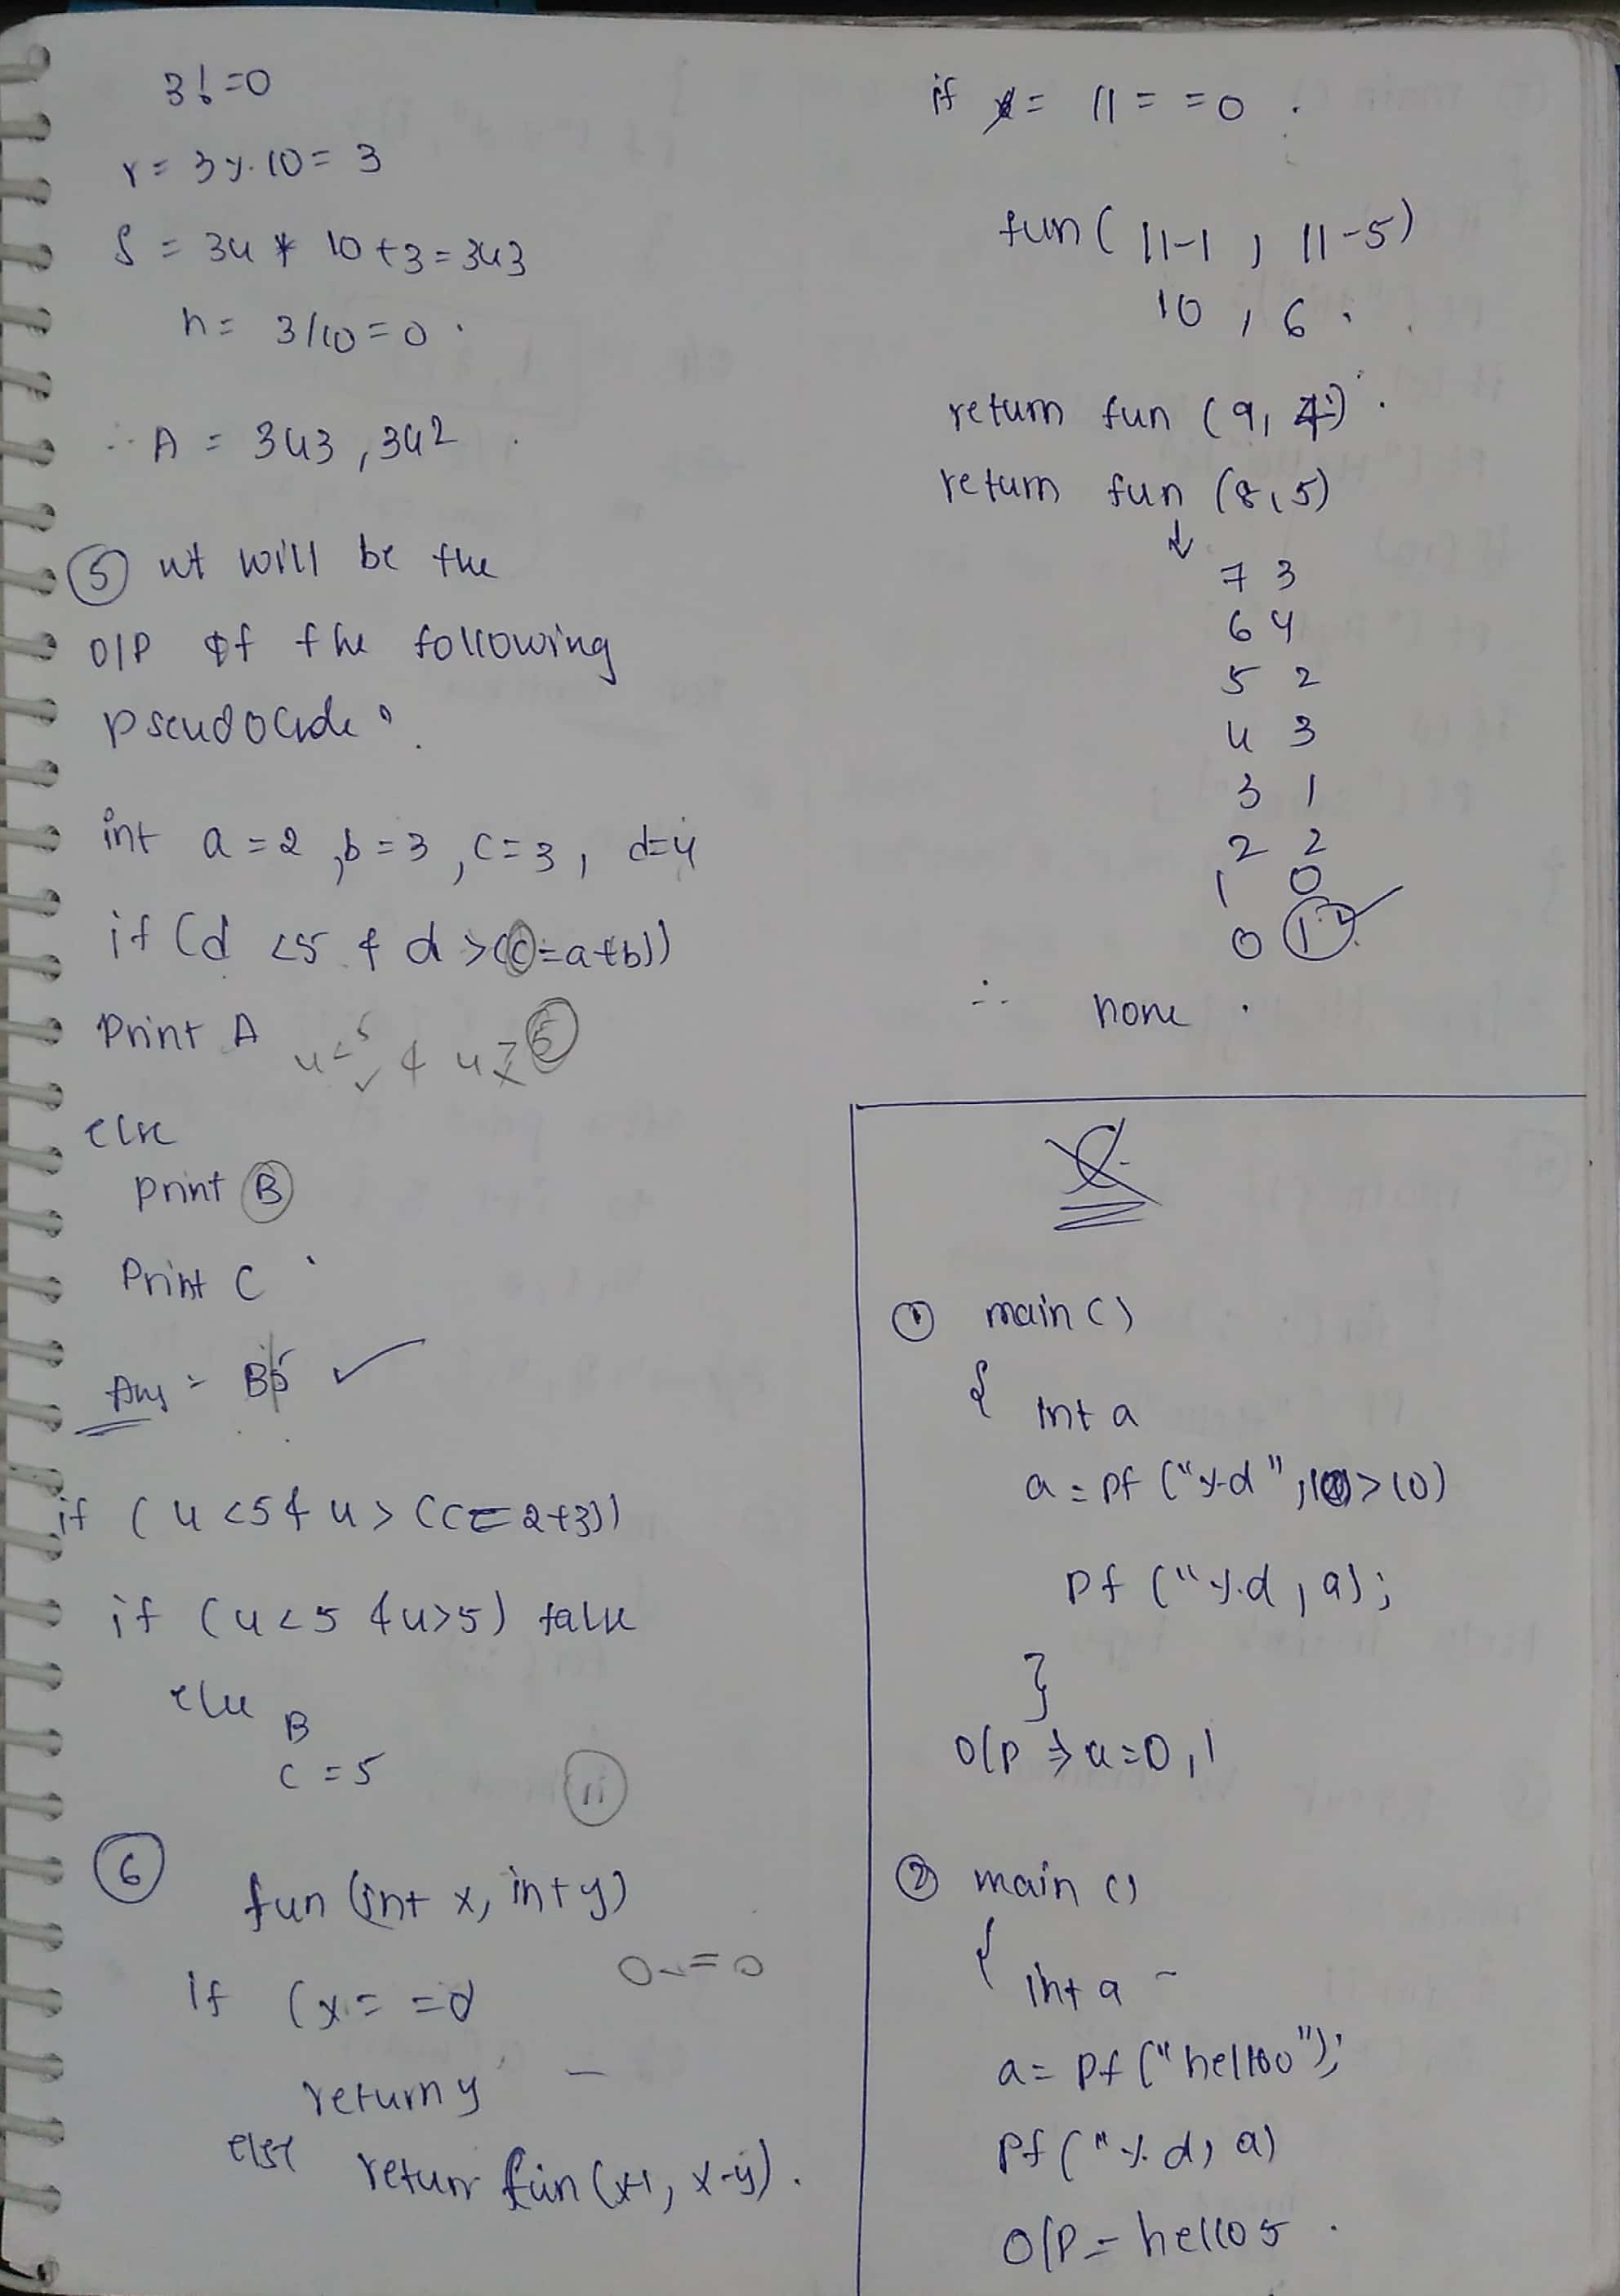 3!=0
r = 3 % 10 = 3
S = 34 * 10 + 3 = 343
n = 3/10 = 0 .
∴ A = 343, 342 .
⑤ wt will be the
O/P of the following
pseudocode?
int a = 2, b = 3, c = 3, d = 4
if (d <5 & d >(c=a+b))
Print A
4 < 5 & 4 > 5
else
print B
Print C
Ans = B5 ✓
if (4 <5 & 4 > (c = 2+3))
if (4<5 & 4>5) false
else B
c = 5
11
⑥ fun (int x, int y)
If (x = = 0
0 = = 0
return y
else return fun (x-1, x-y) .
if x = 11 = = 0 .
fun ( 11-1 , 11-5)
10 , 6 .
return fun (9, 4) .
return fun (8, 5)
↓
7 3
6 4
5 2
4 3
3 1
2 2
1 0
0 1 ✓
∴ none .
C
① main ()
{ int a
a = pf ("%d", 10 > 10)
pf ("%d, a);
}
O/P ⇒ a=0, 1
② main ()
{ int a
a = pf ("hello");
pf ("%d, a)
O/P = hello5 .